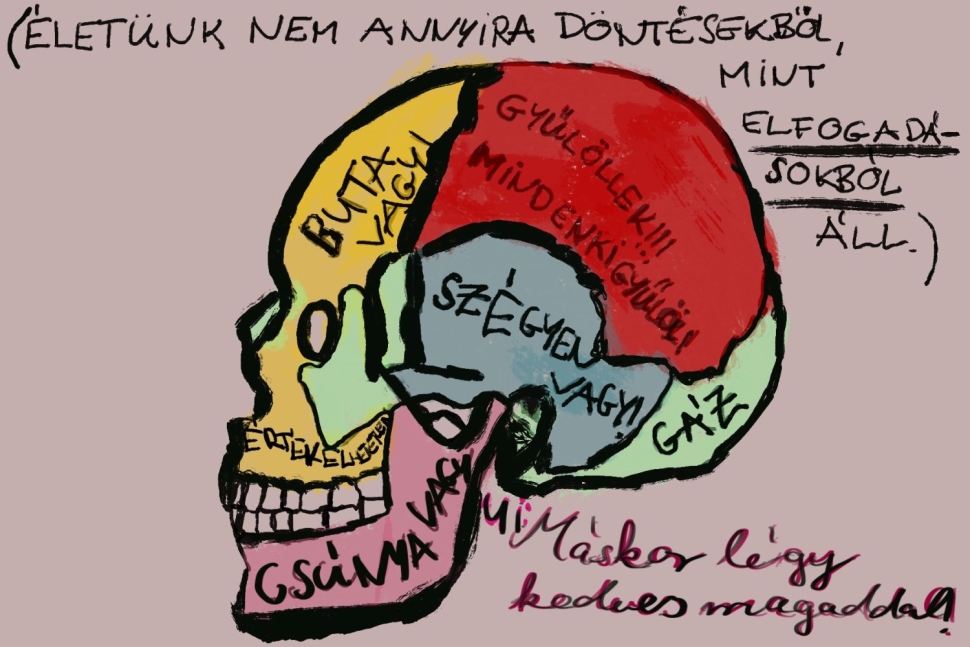 (ÉLETÜNK NEM ANNYIRA DÖNTÉSEKBŐL,
MINT
ELFOGADÁ-
SOKBÓL
ÁLL.)
BUTA
VAGY!
GYŰLÖLLEK!!!
MINDENKI GYŰLÖL!
SZÉGYEN
VAGY!
GÁZ
CSÚNYA VAGY
Máskor légy
kedves magaddal!